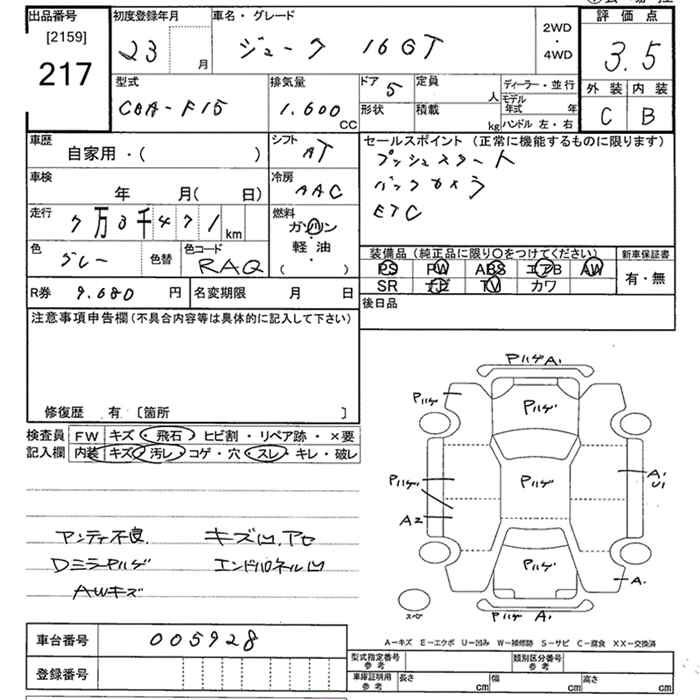 出品番号 初度登録年月 車名・グレード 評価点
[2159]
217
23 月 ジューク 16GT 2WD・4WD 3.5
型式 排気量 ドア 5 定員 人 ディーラー・並行 外装 内装
CBA-F15 1.600 CC 形状 積載 kg モデル年式 年 ハンドル 左・右 C B
車歴 自家用・( ) シフト AT セールスポイント (正常に機能するものに限ります)
プッシュスタート
車検 年 月( 日) 冷房 AAC バックカメラ
走行 7万3千471 km 燃料 ガソリン・軽油・( ) ETC
色 グレー 色替 色コード RAQ
装備品 (純正品に限り○をつけてください) 新車保証書
PS PW ABS エアB AW 有・無
SR ナビ TV カワ
R券 9.680 円 名変期限 月 日 後日品
注意事項申告欄 (不具合内容等は具体的に記入して下さい)
修復歴 有 〔箇所 〕
検査員 FW キズ・飛石・ヒビ割・リペア跡・×要
記入欄 内装 キズ・汚レ・コゲ・穴・スレ・キレ・破レ
アンティ不良. キズ凹.アセ
DミラーPハゲ エンドパネル凹
AWキズ
PハゲA1
Pハゲ Pハゲ
Pハゲ Pハゲ A1 U1
A2
Pハゲ A1
スペア Pハゲ A1
A-キズ E-エクボ U-凹み W-補修跡 S-サビ C-腐食 XX-交換済
車台番号 005928 型式指定番号 参考 類別区分番号 参考
登録番号 車庫証明用 参考 長さ cm 幅 cm 高さ cm